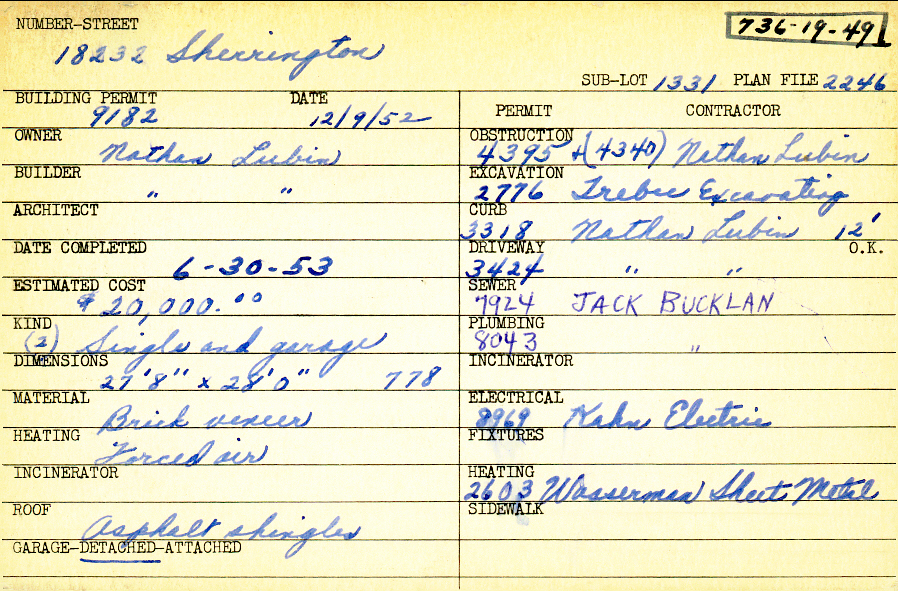 NUMBER-STREET
736-19-49
18232 Sherrington
SUB-LOT 1331 PLAN FILE 2246
BUILDING PERMIT DATE
9182 12/9/52
OWNER
Nathan Lubin
BUILDER
" "
ARCHITECT
DATE COMPLETED
6-30-53
ESTIMATED COST
$20,000.00
KIND
(2) Single and garage
DIMENSIONS
27'8" x 28'0" 778
MATERIAL
Brick veneer
HEATING
Forced air
INCINERATOR
ROOF
Asphalt shingles
GARAGE-DETACHED-ATTACHED
PERMIT CONTRACTOR
OBSTRUCTION
4395 +(4340) Nathan Lubin
EXCAVATION
2776 Trebec Excavating
CURB
3318 Nathan Lubin 12'
DRIVEWAY O.K.
3424 " "
SEWER
7924 JACK BUCKLAN
PLUMBING
8043 "
INCINERATOR
ELECTRICAL
8969 Kahn Electric
FIXTURES
HEATING
2603 Wasserman Sheet Metal
SIDEWALK